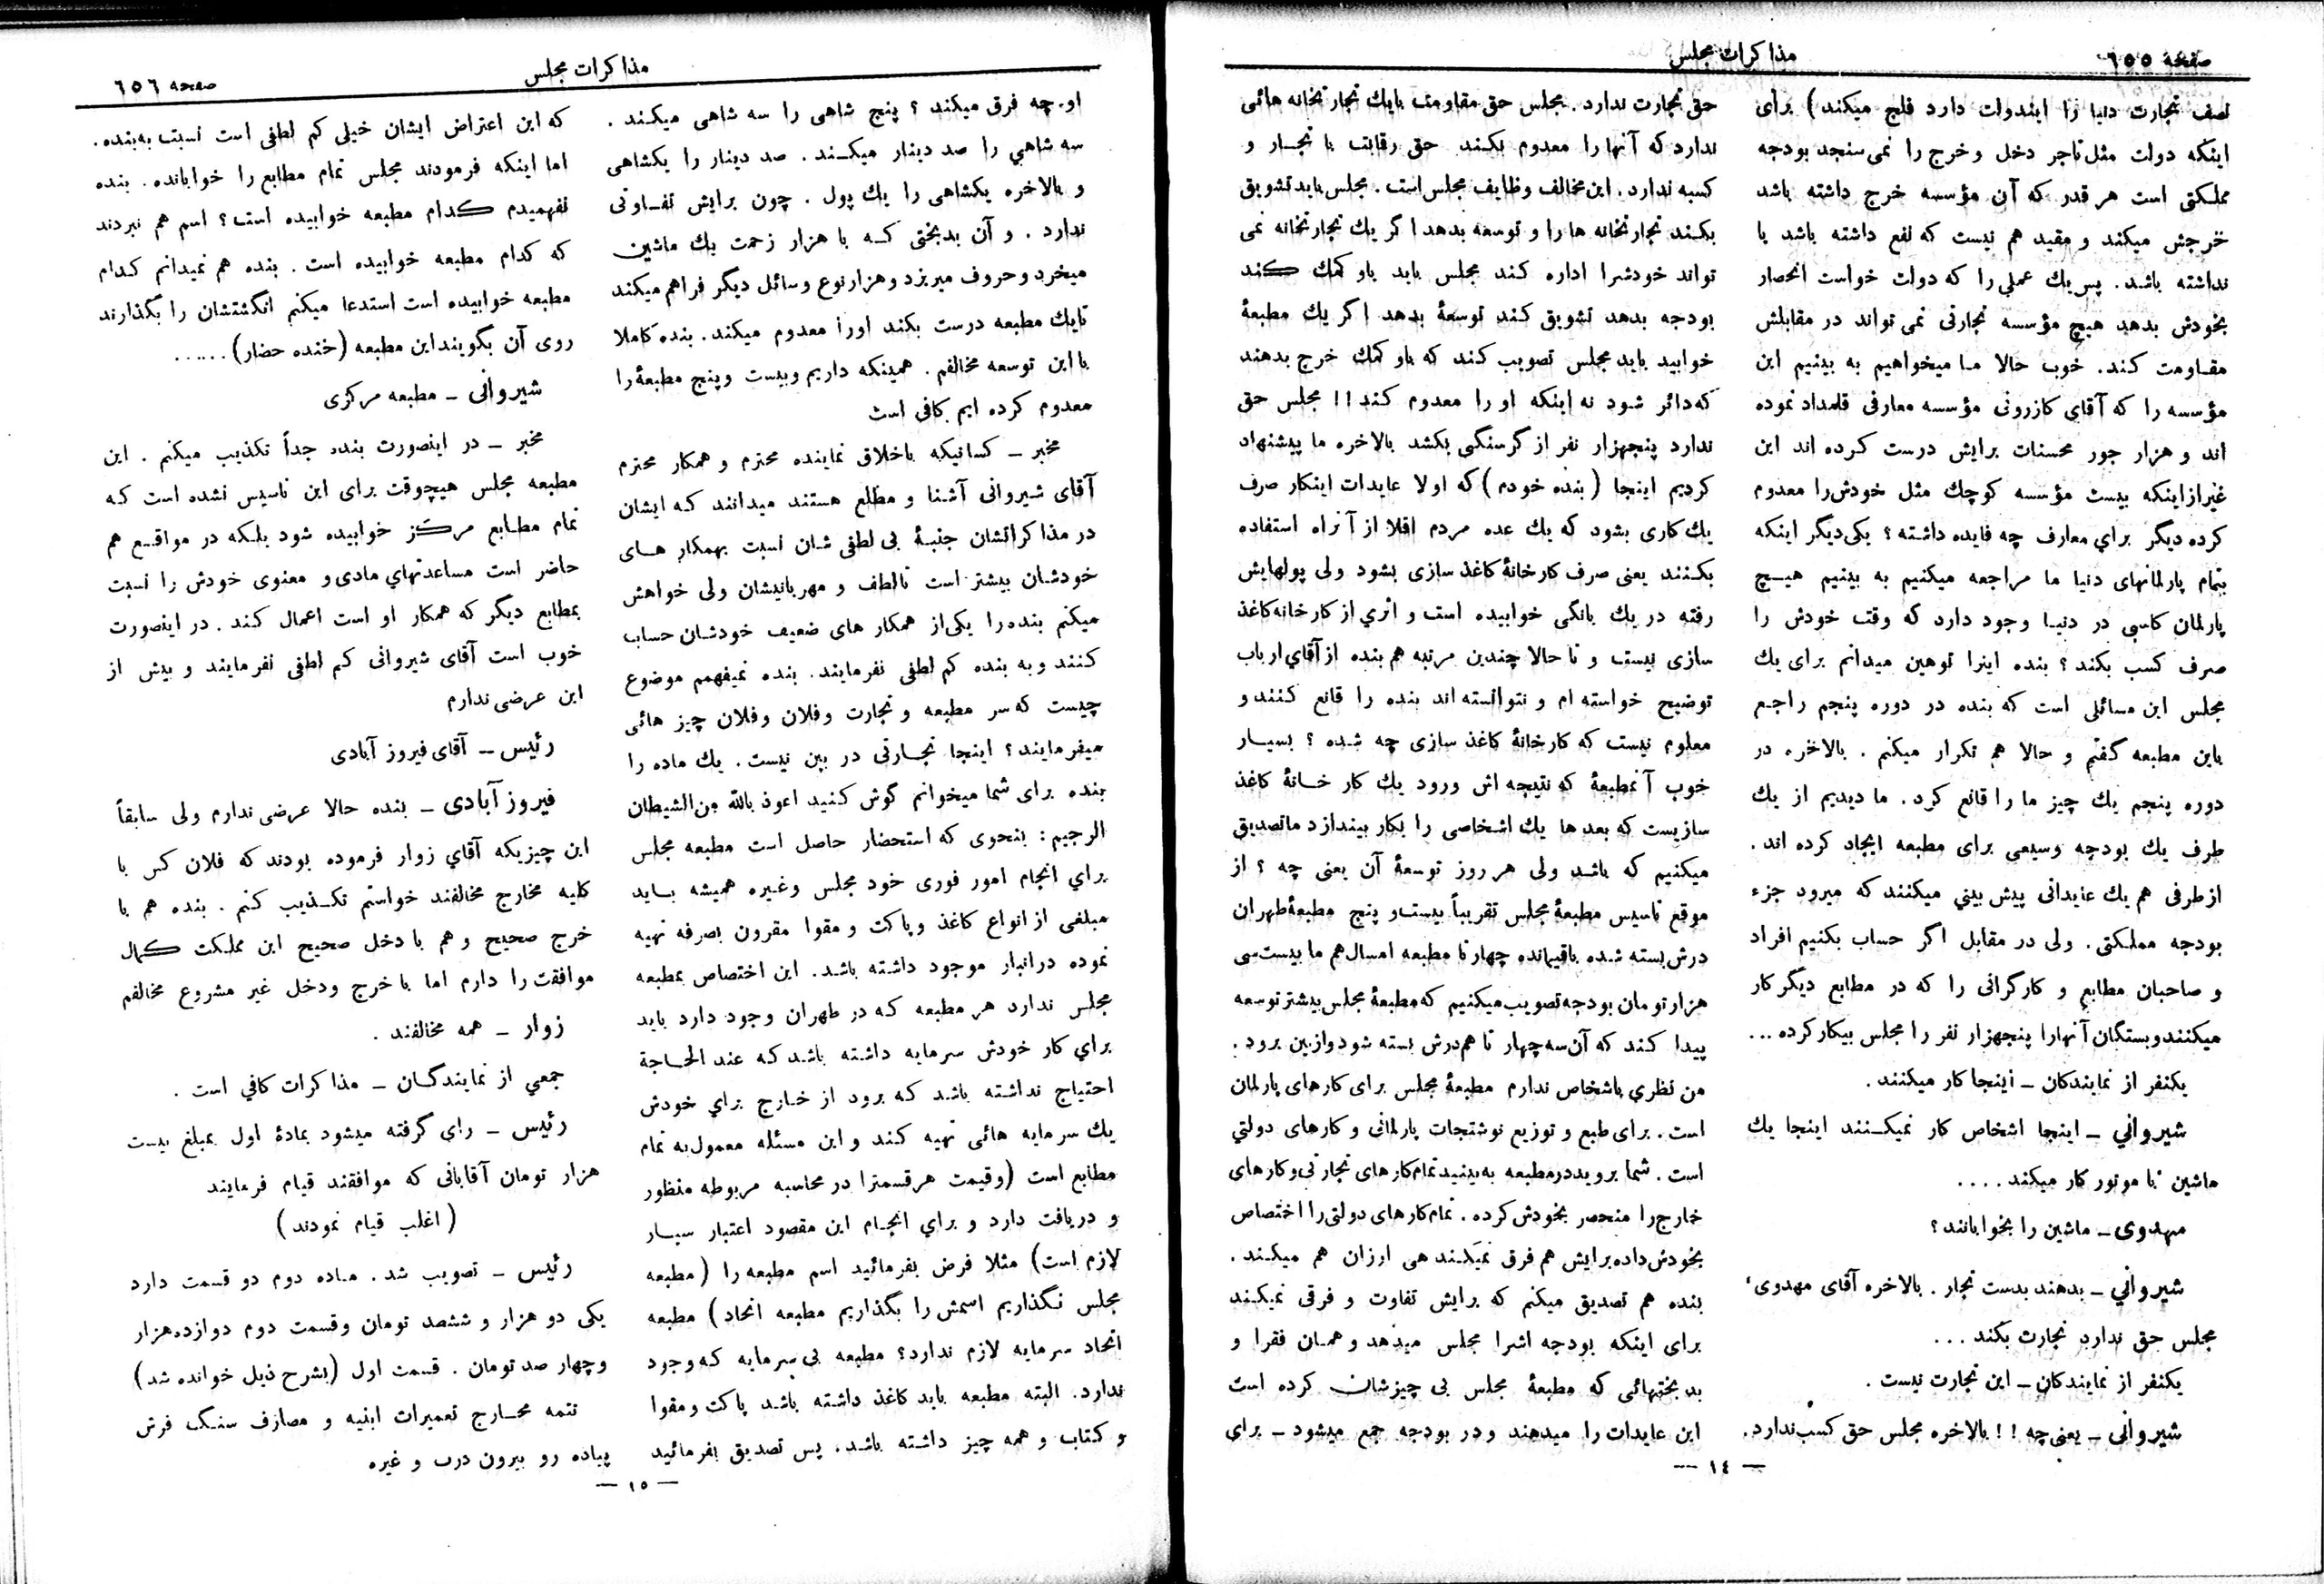 صفحه ٦٥٥
مذاکرات مجلس
نصف تجارت دنیا را ایندولت دارد فلج میکند) برای
اینکه دولت مثل تاجر دخل و خرج را نمی سنجد بودجه
مملکتی است هر قدر که آن مؤسسه خرج داشته باشد
خرجش میکند و مقید هم نیست که نفع داشته باشد یا
نداشته باشد. پس یك عملی را که دولت خواست انحصار
بخودش بدهد هیچ مؤسسه تجارتی نمی تواند در مقابلش
مقاومت کند. خوب حالا ما میخواهیم به بینیم این
مؤسسه را که آقای کازرونی مؤسسه معارفی قلمداد نموده
اند و هزار جور محسنات برایش درست کرده اند این
غیر از اینکه بیست مؤسسه کوچك مثل خودش را معدوم
کرده دیگر برای معارف چه فایده داشته؟ یکی دیگر اینکه
بتمام پارلمانهای دنیا ما مراجعه میکنیم به بینیم هیچ
پارلمان کاسبی در دنیا وجود دارد که وقت خودش را
صرف کسب بکند؟ بنده اینرا توهین میدانم برای یك
مجلس این مسائلی است که بنده در دوره پنجم راجع
باین مطبعه گفتم و حالا هم تکرار میکنم. بالاخره در
دوره پنجم یك چیز ما را قانع کرد. ما دیدیم از یك
طرف یك بودجه وسیعی برای مطبعه ایجاد کرده اند.
از طرفی هم یك عایداتی پیش بینی میکنند که میرود جزء
بودجه مملکتی. ولی در مقابل اگر حساب بکنیم افراد
و صاحبان مطابع و کارگرانی را که در مطابع دیگر کار
میکنند و بستگان آنهارا پنجهزار نفر را مجلس بیکار کرده ...
یکنفر از نمایندکان ــ اینجا کار میکنند.
شیروانی ــ اینجا اشخاص کار نمیکنند اینجا یك
ماشین با موتور کار میکند ....
مهدوی ــ ماشین را بخوابانند؟
شیروانی ــ بدهند بدست تجار. بالاخره آقای مهدوی،
مجلس حق ندارد تجارت بکند ...
یکنفر از نمایندکان ــ این تجارت نیست.
شیروانی ــ یعنی چه !! بالاخره مجلس حق کسب ندارد.
حق تجارت ندارد. مجلس حق مقاومت با یك تجارتخانه هائی
ندارد که آنها را معدوم بکند. حق رقابت با تجار و
کسبه ندارد. این مخالف وظایف مجلس است. مجلس باید تشویق
بکند تجارتخانه ها را و توسعه بدهد اگر یك تجارتخانه نمی
تواند خودشرا اداره کند مجلس باید باو کمك کند
بودجه بدهد تشویق کند توسعهٔ بدهد اگر یك مطبعهٔ
خوابید باید مجلس تصویب کند که باو کمك خرج بدهند
که دائر شود نه اینکه او را معدوم کند!! مجلس حق
ندارد پنجهزار نفر از گرسنگی بکشد بالاخره ما پیشنهاد
کردیم اینجا (بنده خودم) که اولا عایدات اینکار صرف
یك کاری بشود که یك عده مردم اقلا از آنراه استفاده
بکنند یعنی صرف کارخانهٔ کاغذ سازی بشود ولی پولهایش
رفته در یك بانکی خوابیده است و اثری از کارخانه کاغذ
سازی نیست و تا حالا چندین مرتبه هم بنده از آقای ارباب
توضیح خواسته ام و نتوانسته اند بنده را قانع کنند و
معلوم نیست که کارخانهٔ کاغذ سازی چه شده؟ بسیار
خوب آنمطبعهٔ که نتیجه اش ورود یك کار خانهٔ کاغذ
سازیست که بعد ها یك اشخاصی را بکار بیندازد ما تصدیق
میکنیم که باشد ولی هر روز توسعهٔ آن یعنی چه؟ از
موقع تاسیس مطبعهٔ مجلس تقریباً بیست و پنج مطبعهٔ طهران
درش بسته شده باقیمانده چهار تا مطبعه امسال هم ما بیست سی
هزار تومان بودجه تصویب میکنیم که مطبعهٔ مجلس بیشتر توسعه
پیدا کند که آن سه چهار تا هم درش بسته شود و از بین برود.
من نظری باشخاص ندارم مطبعهٔ مجلس برای کارهای پارلمان
است. برای طبع و توزیع نوشتجات پارلمانی و کارهای دولتی
است. شما بروید در مطبعه به بینید تمام کارهای تجارتی و کارهای
خارج را منحصر بخودش کرده. تمام کارهای دولتی را اختصاص
بخودش داده برایش هم فرق نمیکند هی ارزان هم میکند.
بنده هم تصدیق میکنم که برایش تفاوت و فرقی نمیکند
برای اینکه بودجه اشرا مجلس میدهد و همان فقرا و
بدبختهائی که مطبعهٔ مجلس بی چیزشان کرده است
این عایدات را میدهند و در بودجه جمع میشود ــ برای
— ١٤ —
مذاکرات مجلس
صفحه ٦٥٦
او. چه فرق میکند؟ پنج شاهی را سه شاهی میکند.
سه شاهی را صد دینار میکند. صد دینار را یکشاهی
و بالاخره یکشاهی را یك پول. چون برایش تفاوتی
ندارد. و آن بدبختی که با هزار زحمت یك ماشین
میخرد و حروف میریزد و هزار نوع وسائل دیگر فراهم میکند
تا یك مطبعه درست بکند اورا معدوم میکند. بنده کاملا
با این توسعه مخالفم. همینکه داریم و بیست و پنج مطبعهٔ را
معدوم کرده ایم کافی است
مخبر ــ کسانیکه باخلاق نماینده محترم و همکار محترم
آقای شیروانی آشنا و مطلع هستند میدانند که ایشان
در مذاکراتشان جنبهٔ بی لطفی شان نسبت بهمکار های
خودشان بیشتر است تا لطف و مهربانیشان ولی خواهش
میکنم بنده را یکی از همکار های ضعیف خودشان حساب
کنند و به بنده کم لطفی نفرمایند. بنده نمیفهمم موضوع
چیست که سر مطبعه و تجارت و فلان و فلان چیز هائی
میفرمایند؟ اینجا تجارتی در بین نیست. یك ماده را
بنده برای شما میخوانم گوش کنید اعوذ بالله من الشیطان
الرجیم: بنحوی که استحضار حاصل است مطبعه مجلس
برای انجام امور فوری خود مجلس وغیره همیشه باید
مبلغی از انواع کاغذ و پاکت و مقوا مقرون بصرفه تهیه
نموده در انبار موجود داشته باشد. این اختصاص بمطبعه
مجلس ندارد هر مطبعه که در طهران وجود دارد باید
برای کار خودش سرمایه داشته باشد که عند الحاجة
احتیاج نداشته باشد که برود از خارج برای خودش
یك سرمایه هائی تهیه کند و این مسئله معمول به تمام
مطابع است (و قیمت هر قسمترا در محاسبه مربوطه منظور
و دریافت دارد و برای انجام این مقصود اعتبار سیار
لازم است) مثلا فرض بفرمائید اسم مطبعه را (مطبعه
مجلس نگذاریم اسمش را بگذاریم مطبعه اتحاد) مطبعه
اتحاد سرمایه لازم ندارد؟ مطبعه بی سرمایه که وجود
ندارد. البته مطبعه باید کاغذ داشته باشد پاکت و مقوا
و کتاب و همه چیز داشته باشد. پس تصدیق بفرمائید
که این اعتراض ایشان خیلی کم لطفی است نسبت به بنده.
اما اینکه فرمودند مجلس تمام مطابع را خوابانده. بنده
نفهمیدم کدام مطبعه خوابیده است؟ اسم هم نبردند
که کدام مطبعه خوابیده است. بنده هم نمیدانم کدام
مطبعه خوابیده است استدعا میکنم انگشتشان را بگذارند
روی آن بگویند این مطبعه (خنده حضار) ......
شیروانی ــ مطبعه مرکزی
مخبر ــ در اینصورت بنده جداً تکذیب میکنم. این
مطبعه مجلس هیچوقت برای این تاسیس نشده است که
تمام مطابع مرکز خوابیده شود بلکه در مواقع هم
حاضر است مساعدتهای مادی و معنوی خودش را نسبت
بمطابع دیگر که همکار او است اعمال کند. در اینصورت
خوب است آقای شیروانی کم لطفی نفرمایند و بیش از
این عرضی ندارم
رئیس ــ آقای فیروز آبادی
فیروز آبادی ــ بنده حالا عرضی ندارم ولی سابقاً
این چیزیکه آقای زوار فرموده بودند که فلان کس با
کلیه مخارج مخالفند خواستم تکذیب کنم. بنده هم با
خرج صحیح و هم با دخل صحیح این مملکت کمال
موافقت را دارم اما با خرج و دخل غیر مشروع مخالفم
زوار ــ همه مخالفند.
جمعی از نمایندگان ــ مذاکرات کافی است.
رئیس ــ رای گرفته میشود بمادهٔ اول بمبلغ بیست
هزار تومان آقایانی که موافقند قیام فرمایند
(اغلب قیام نمودند)
رئیس ــ تصویب شد. ماده دوم دو قسمت دارد
یکی دو هزار و ششصد تومان و قسمت دوم دوازده هزار
و چهار صد تومان. قسمت اول (بشرح ذیل خوانده شد)
تتمه مخارج تعمیرات ابنیه و مصارف سنگ فرش
پیاده رو بیرون درب و غیره
— ١٥ —